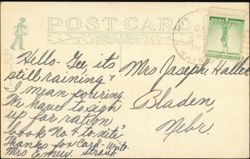 POST CARD
Hello - Gee its
still raining &
I mean pouring.
We have to sign
up for ration
book No 4 to nite
Thanks for card. write
Mrs Emery
Mrs Joseph
Bladen,
Nebr.